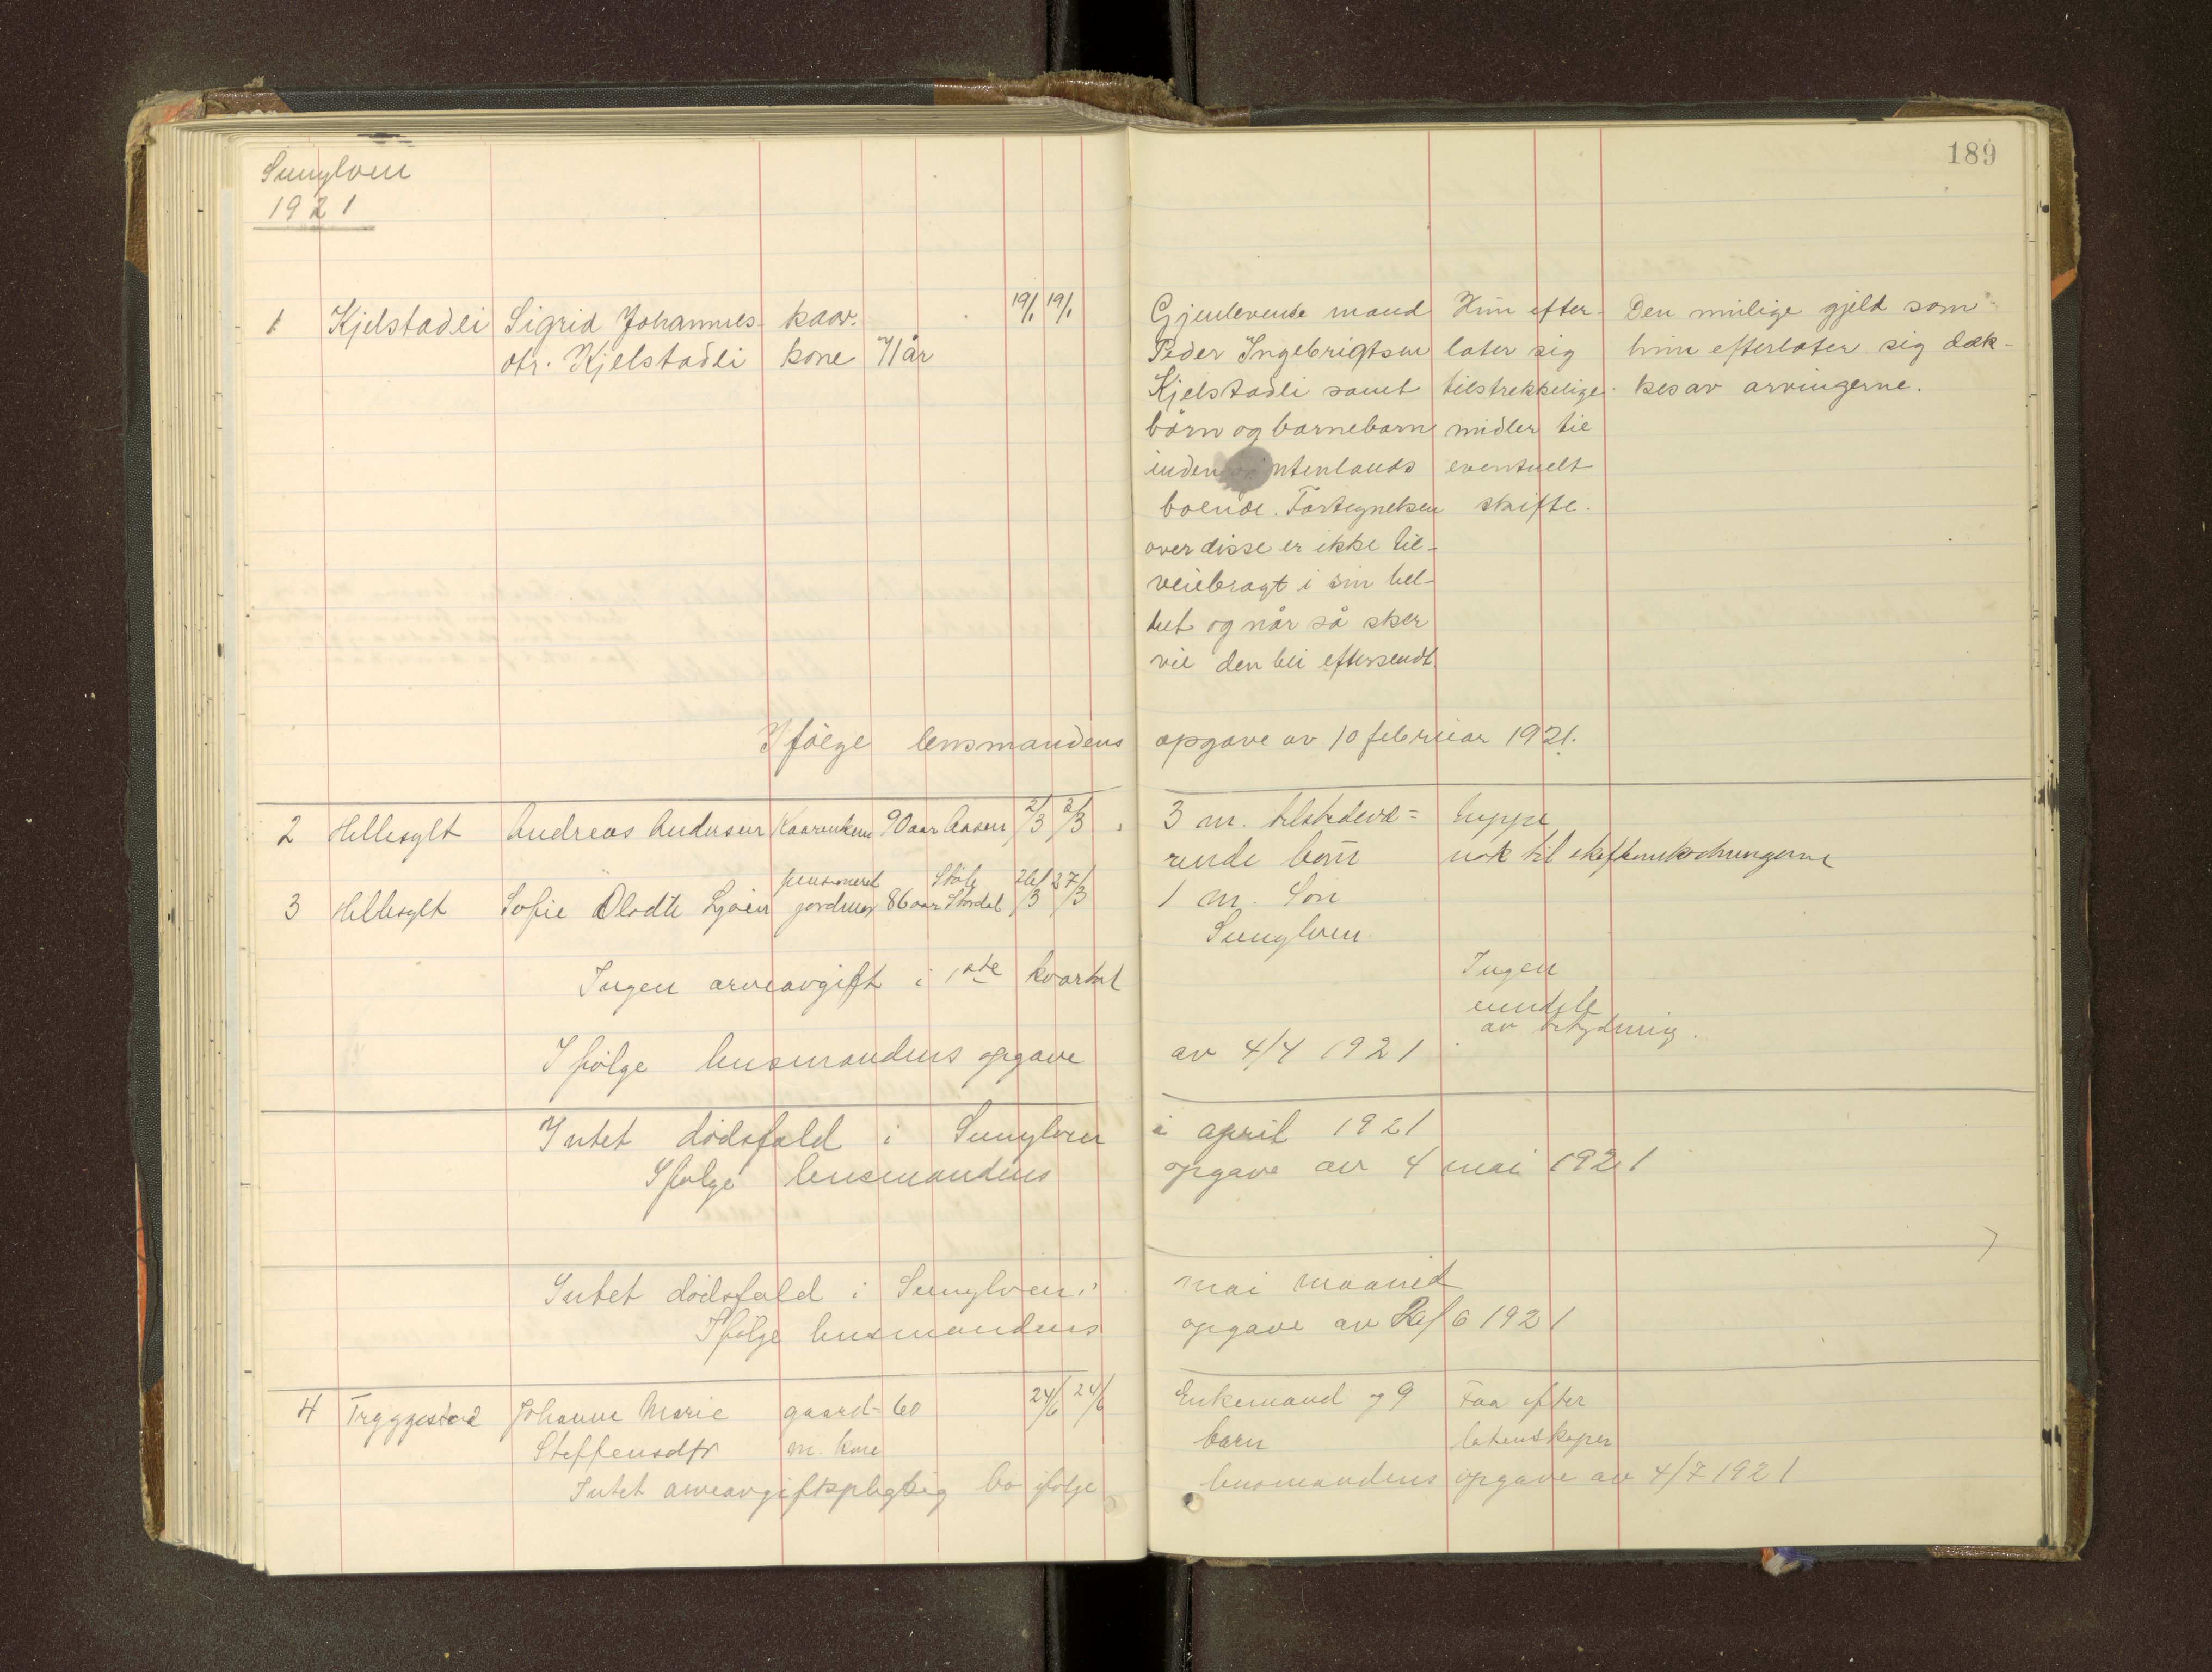 189
Sunylven
1921
1 Kjelstadli Sigrid Johannes- kaar. 19/1 19/1 Gjenlevende mand Hun efter- Den mulige gjeld som
dtr. Kjelstadli kone 71 år Peder Ingebrigtsen later sig hun efterlater sig dæk-
Kjelstadli samt tilstrekkelige kes av arvingerne.
børn og barnebarn midler til
inden og utenlands eventuelt
boende. Fortegnelsen skifte.
over disse er ikke til-
veiebragt i sin hel-
het og når så sker
vil den bli eftersendt
Ifølge lensmandens opgave av 10 februar 1921.
2 Hellesylt Andreas Andersen 90 aar Aasen 2/3 2/3 3 m. tilstedevæ=
rende børn nok til
3 Hellesylt Sofie Ljøen pensioneret jordmor 86 aar Stordal 26/3 27/3 1 m. Søn
Sunylven.
Ingen arveavgift i 1ste kvartal Ingen
eiendele
av betydning.
Ifølge lensmandens opgave av 4/4 1921
Intet dødsfald i Sunylven i april 1921
Ifølge lensmandens opgave av 4 mai 1921
Intet dødsfald i Sunylven i mai maaned
Ifølge lensmandens opgave av /6 1921
4 Tryggestad Johanne Marie gaard= 60 24/6 24/6 Enkemand og 9 Faa efter
Steffensdtr m. kone barn latenskaper
Intet arveavgiftspligtig bo ifølge lensmandens opgave av 4/7 1921